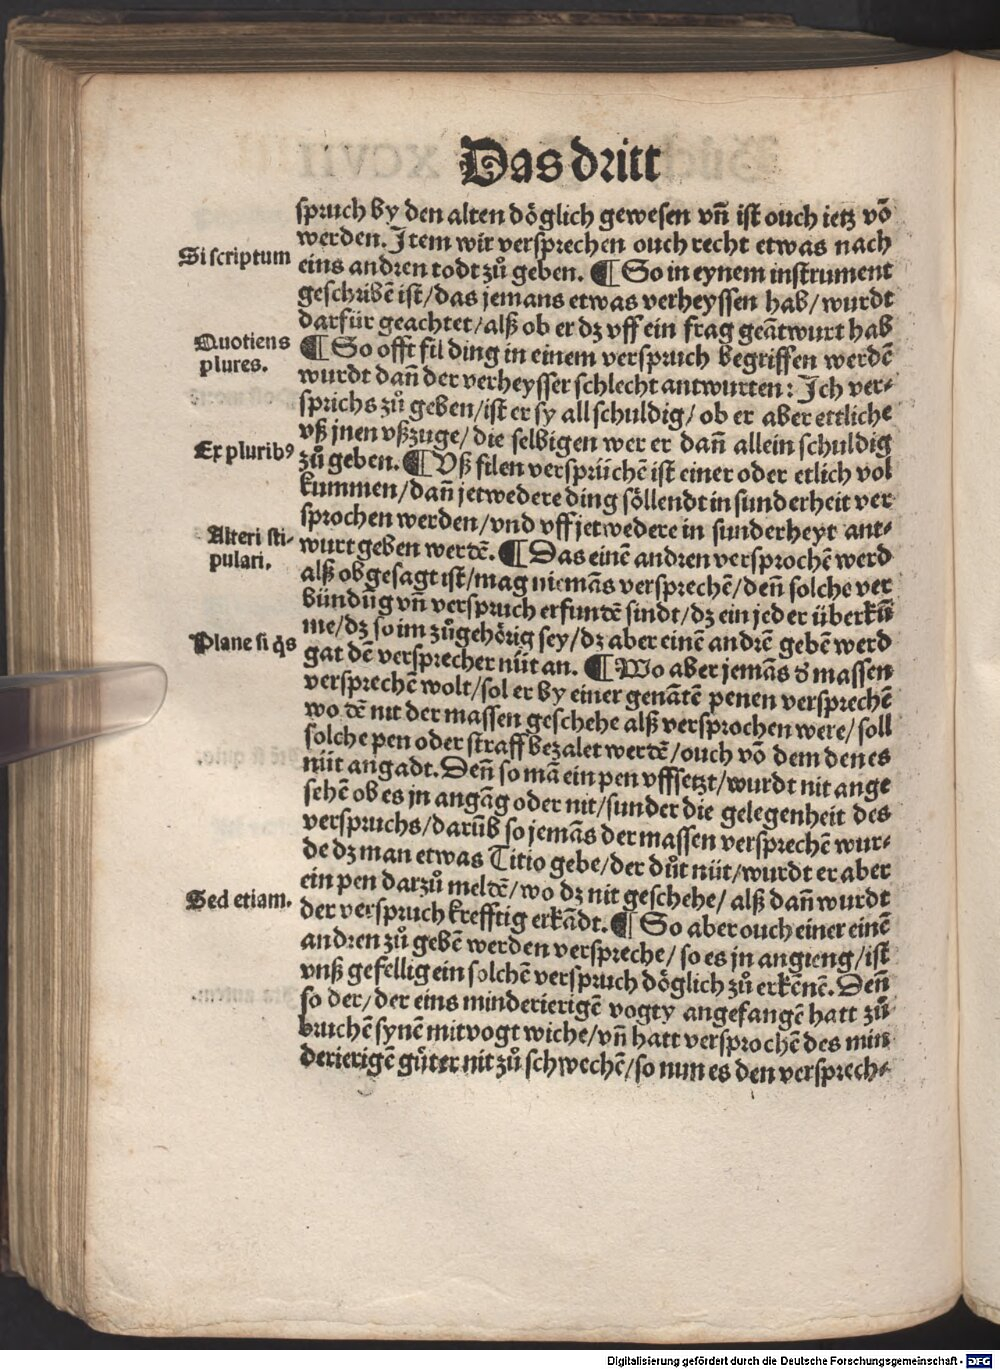 Das dritt
spruch by den alten döglich gewesen vn̄ ist ouch ietz vō
werden. Item wir versprechen ouch recht etwas nach
Si scriptum
eins andren todt zů geben. ¶ So in eynem instrument
geschribē ist/das jemans etwas verheyssen hab/wurdt
darfür geachtet/alß ob er dz vff ein frag geātwurt hab
Quotiens
plures.
¶ So offt fil ding in einem verspruch begriffen werdē
wurdt dan̄ der verheysser schlecht antwurten: Ich ver⸗
sprichs zů geben/ist er sy all schuldig/ ob er aber ettliche
vß jnen vßzuge/ die selbigen wer er dan̄ allein schuldig
Ex pluribꝰ
zů geben. ¶ Vß filen versprüchē ist einer oder etlich vol
kummen/dan̄ jetwedere ding söllendt in sunderheit ver
sprochen werden/vnd vff jetwedere in sunderheyt ant⸗
Alteri sti-
pulari.
wurt geben werdē. ¶ Das einē andren versprochē werd
alß ob gesagt ist/mag niemās versprechē/den̄ solche ver
bündūg vn̄ verspruch erfundē sindt/dz ein jeder überkū
me/dz so im zůgehörig sey/dz aber einē andrē gebē werd
Plane si q̇s
gat dē versprecher nüt an. ¶ Wo aber jemās d' massen
versprechē wolt/sol er by einer genātē penen versprechē
wo dē nit der massen geschehe alß versprochen were/soll
solche pen oder straff bezalet werdē/ouch vō dem den es
nüt angadt. Den̄ so mā ein pen vffsetzt/wurdt nit ange
sehē ob es jn angāg oder nit/sunder die gelegenheit des
verspruchs/darūb so jemās der massen versprechē wur⸗
de dz man etwas Titio gebe/der důt nüt/wurdt er aber
ein pen darzů meldē/wo dz nit geschehe/ alß dan̄ wurdt
Sed etiam.
der verspruch krefftig erkādt. ¶ So aber ouch einer einē
andren zů gebē werden verspreche/ so es jn angieng/ist
vnß gefellig ein solchē verspruch döglich zů erkēnē. Den̄
so der/der eins minderierigē vogty angefangē hatt zů
bruchē synē mitvogt wiche/vn̄ hatt versprochē des min
derierigē gůter nit zů schwechē/so nun es den versprech⸗
Digitalisierung gefördert durch die Deutsche Forschungsgemeinschaft - DFG